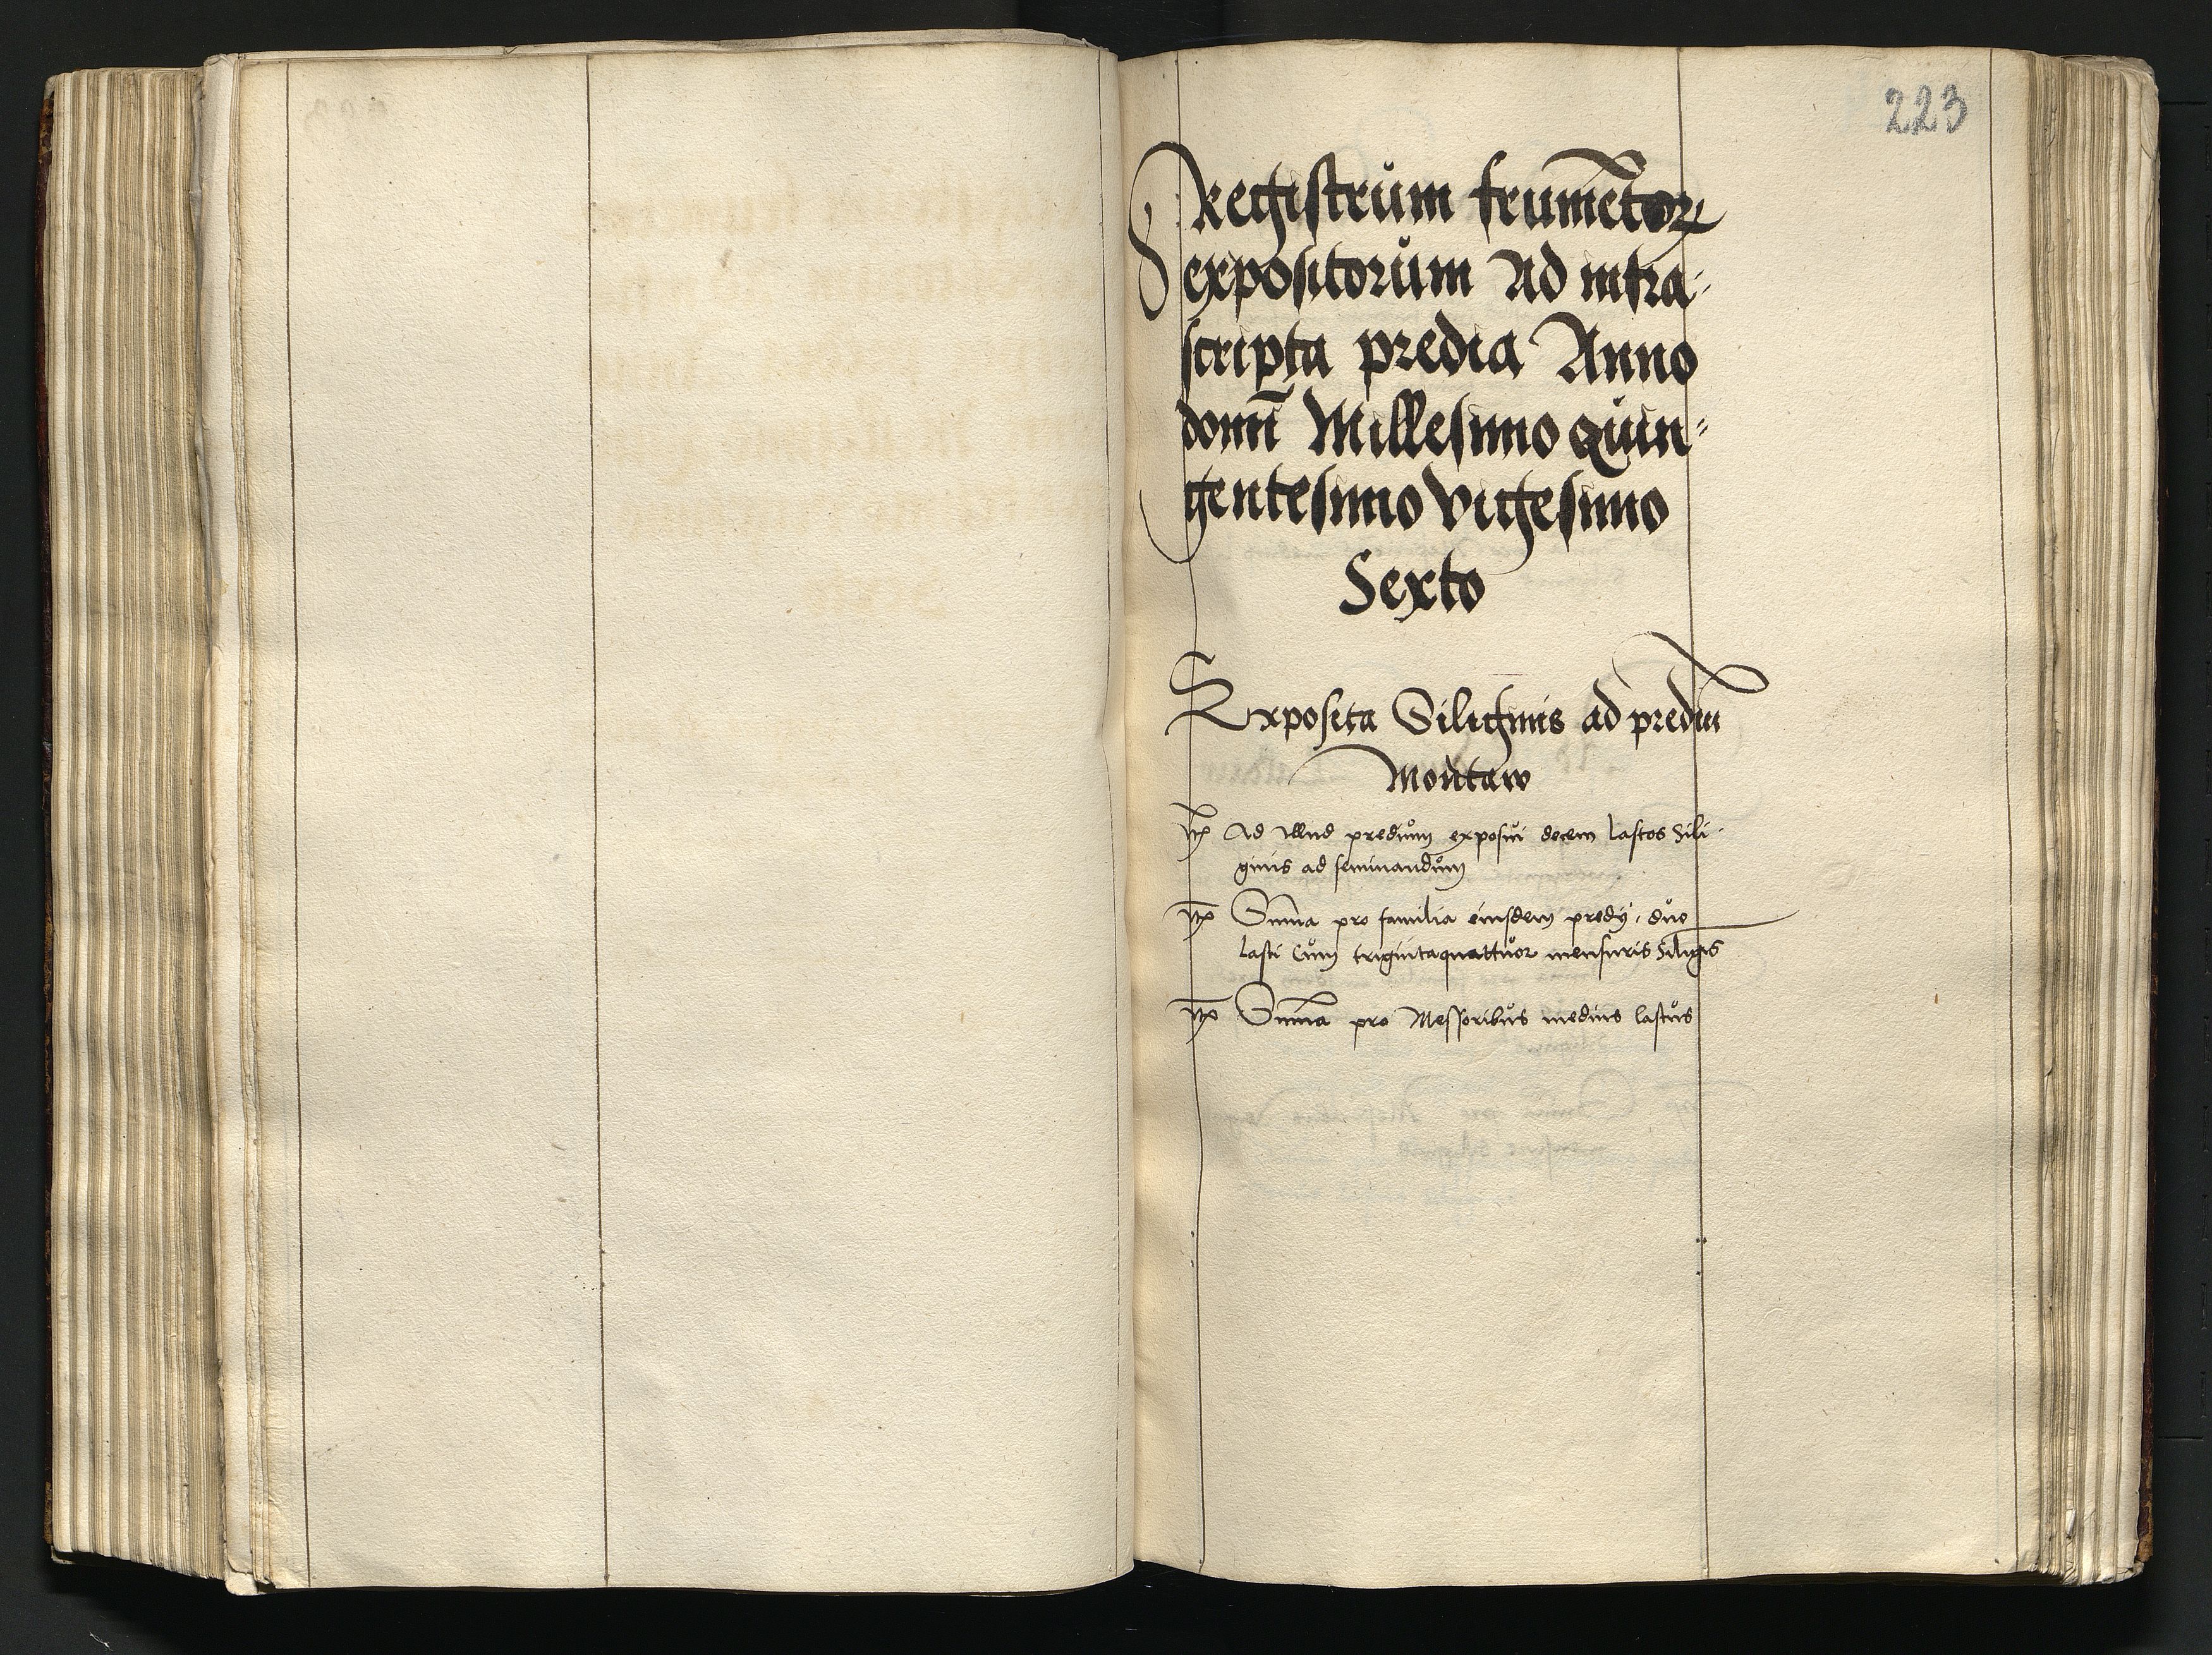 223
Registrum frumētoꝝ
expositorum Ad infra⸗
scripta predia Anno
domī Millesimo quin⸗
gentesimo vigesimo
Sexto
Exposita Siliginis ad prediū
Montaw
Itē Ad illud predium exposui decem lastos Sili⸗
ginis ad seminandum
Itē Sūma pro familia eiusdem predij, duo
lasti Cum trigintaquattuor mensuris Siligīs
Itē Sūma pro Messoribus medius lastus